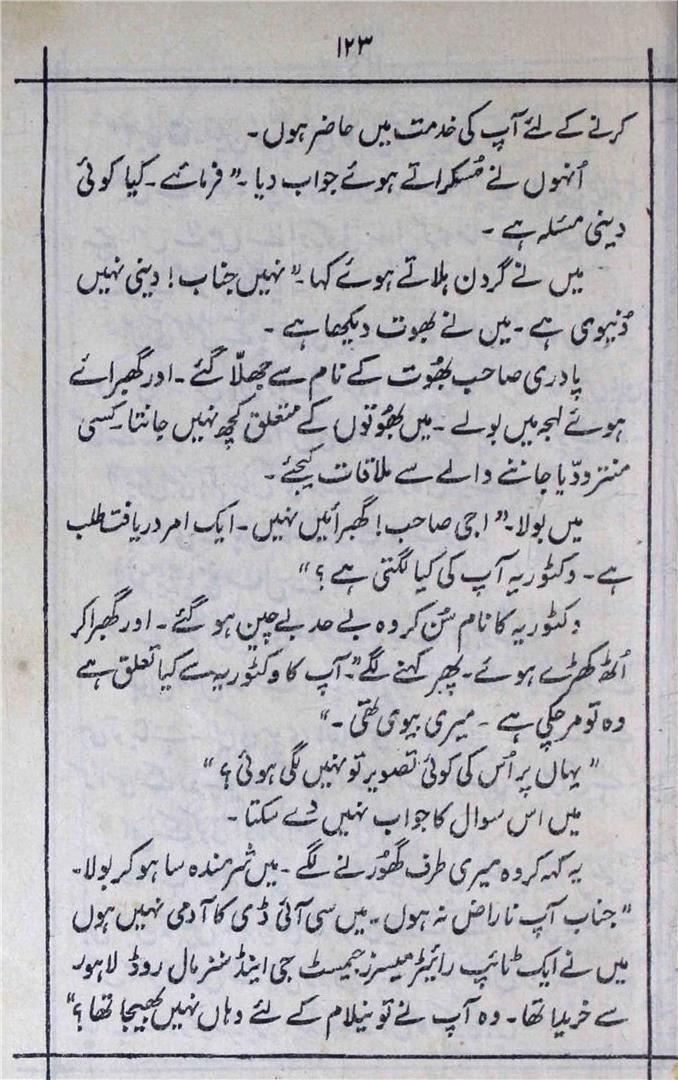 ۱۲۳
کرنے کے لئے آپ کی خدمت میں حاضر ہوں۔
اُنہوں نے مُسکراتے ہوئے جواب دیا۔ ”فرمائے۔ کیا کوئی
دینی مسئلہ ہے ۔
میں نے گردن ہلاتے ہوئے کہا۔ ”نہیں جناب! دینی نہیں
دُنیوی ہے ۔ میں نے بھوت دیکھا ہے ۔
پادری صاحب بھُوت کے نام سے جھلّا گئے ۔ اور گھبرائے
ہوئے لہجہ میں بولے ۔ میں بھُوتوں کے متعلق کچھ نہیں جانتا۔ کسی
منترودّیا جاننے والے سے ملاقات کیجئے ۔
میں بولا۔ ”اجی صاحب! گھبرائیں نہیں۔ ایک امر دریافت طلب
ہے ۔ وکٹوریہ آپ کی کیا لگتی ہے ؟“
وکٹوریہ کا نام سُن کر وہ بے حد بے چین ہو گئے ۔ اور گھبرا کر
اُٹھ کھڑے ہوئے۔ پھر کہنے لگے ”۔ آپ کا وکٹوریہ سے کیا تعلق ہے
وہ تو مر چکی ہے ۔ میری بیوی تھی ۔“
”یہاں پر اُس کی کوئی تصویر تو نہیں لگی ہوئی ؟“
میں اس سوال کا جواب نہیں دے سکتا ۔
یہ کہہ کر وہ میری طرف گھُورنے لگے ۔ میں شرمندہ سا ہو کر بولا۔
”جناب آپ ناراض نہ ہوں۔ میں سی آئی ڈی کا آدمی نہیں ہوں
میں نے ایک ٹائپ رائیٹر میسرز جیمسٹ جی اینڈ سنز مال روڈ لاہور
سے خریدا تھا۔ وہ آپ نے تو نیلام کے لئے وہاں نہیں بھیجا تھا ؟“